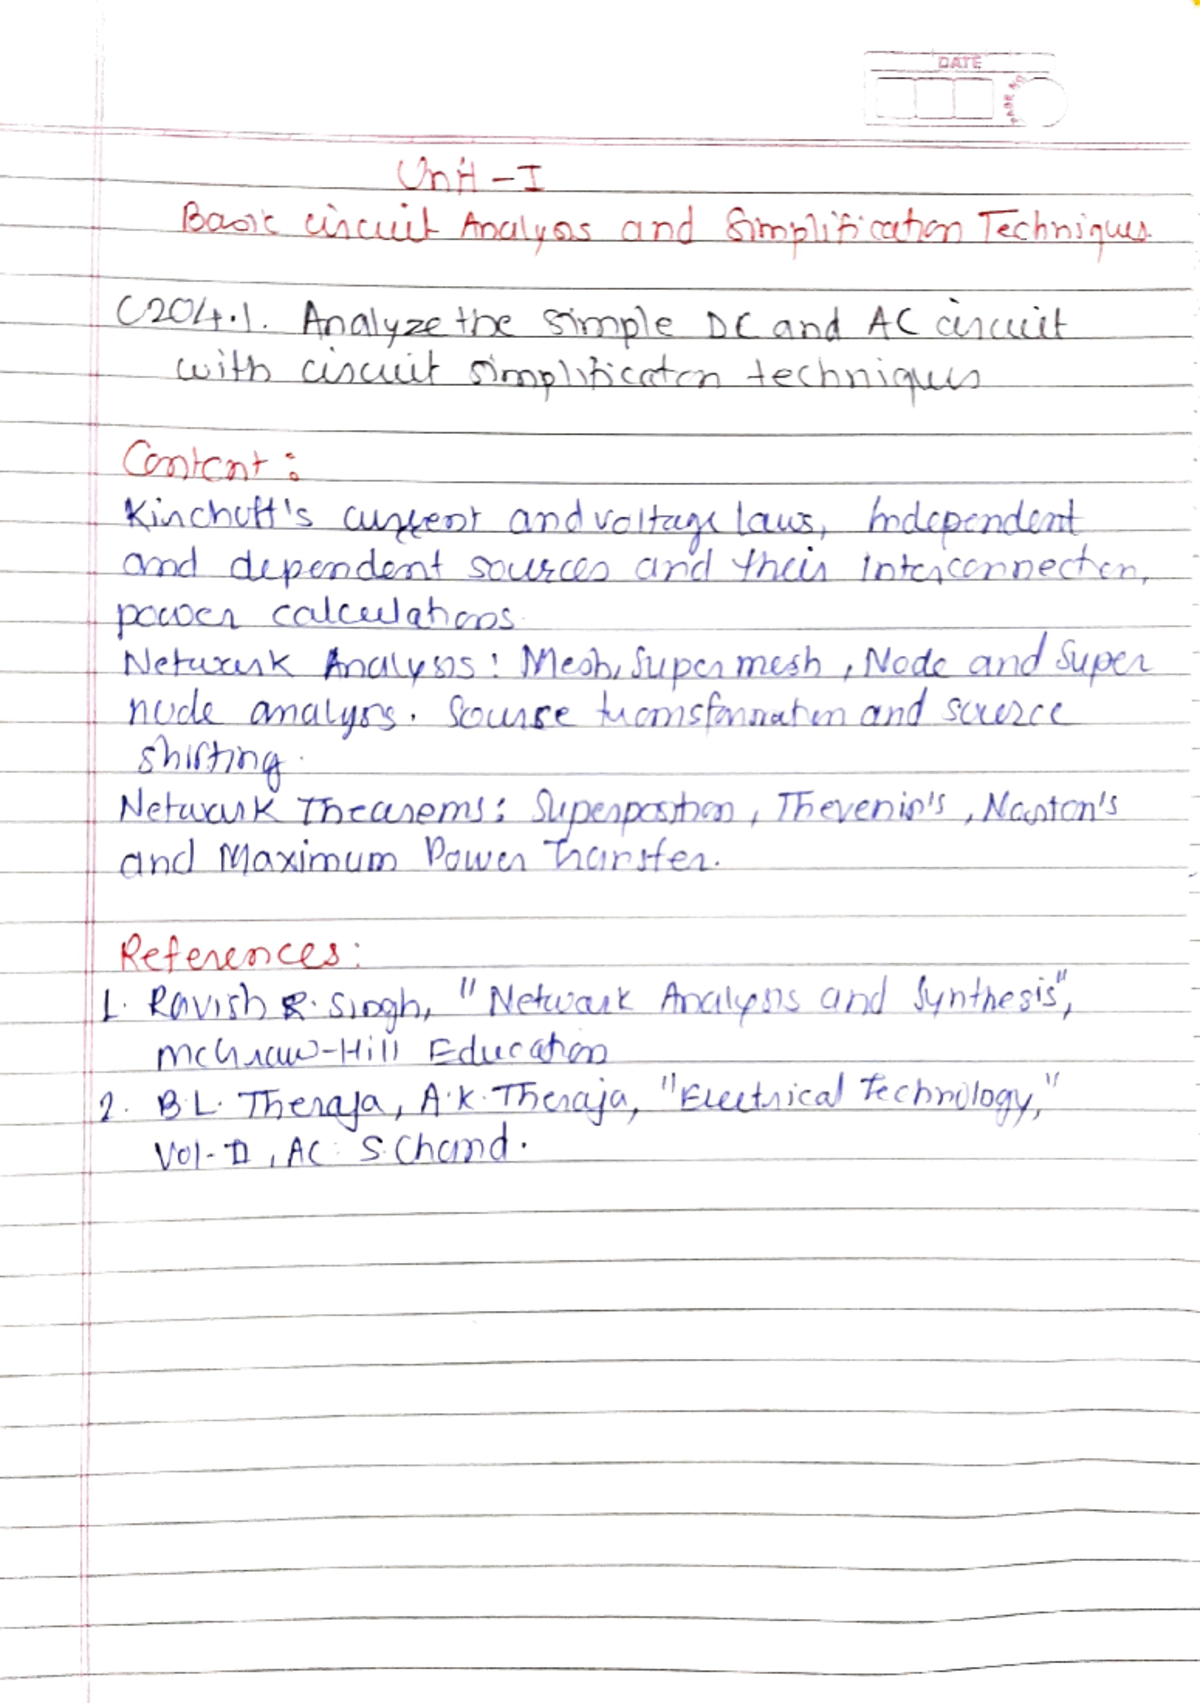 DATE
PAGE NO
Unit - I
Basic circuit Analysis and Simplification Techniques.
C204.1. Analyze the simple DC and AC circuit
with circuit simplification techniques
Content :
Kirchoff's current and voltage laws, Independent
and dependent sources and their interconnection,
power calculations.
Network Analysis : Mesh, Super mesh, Node and Super
node analysis. Source transformation and source
shifting.
Network Theorems : Superposition, Thevenin's, Norton's
and Maximum Power Transfer.
References :
1. Ravish R. Singh, "Network Analysis and Synthesis",
McGraw-Hill Education
2. B.L. Theraja, A.K. Theraja, "Electrical Technology,"
Vol-II, AC S.Chand.